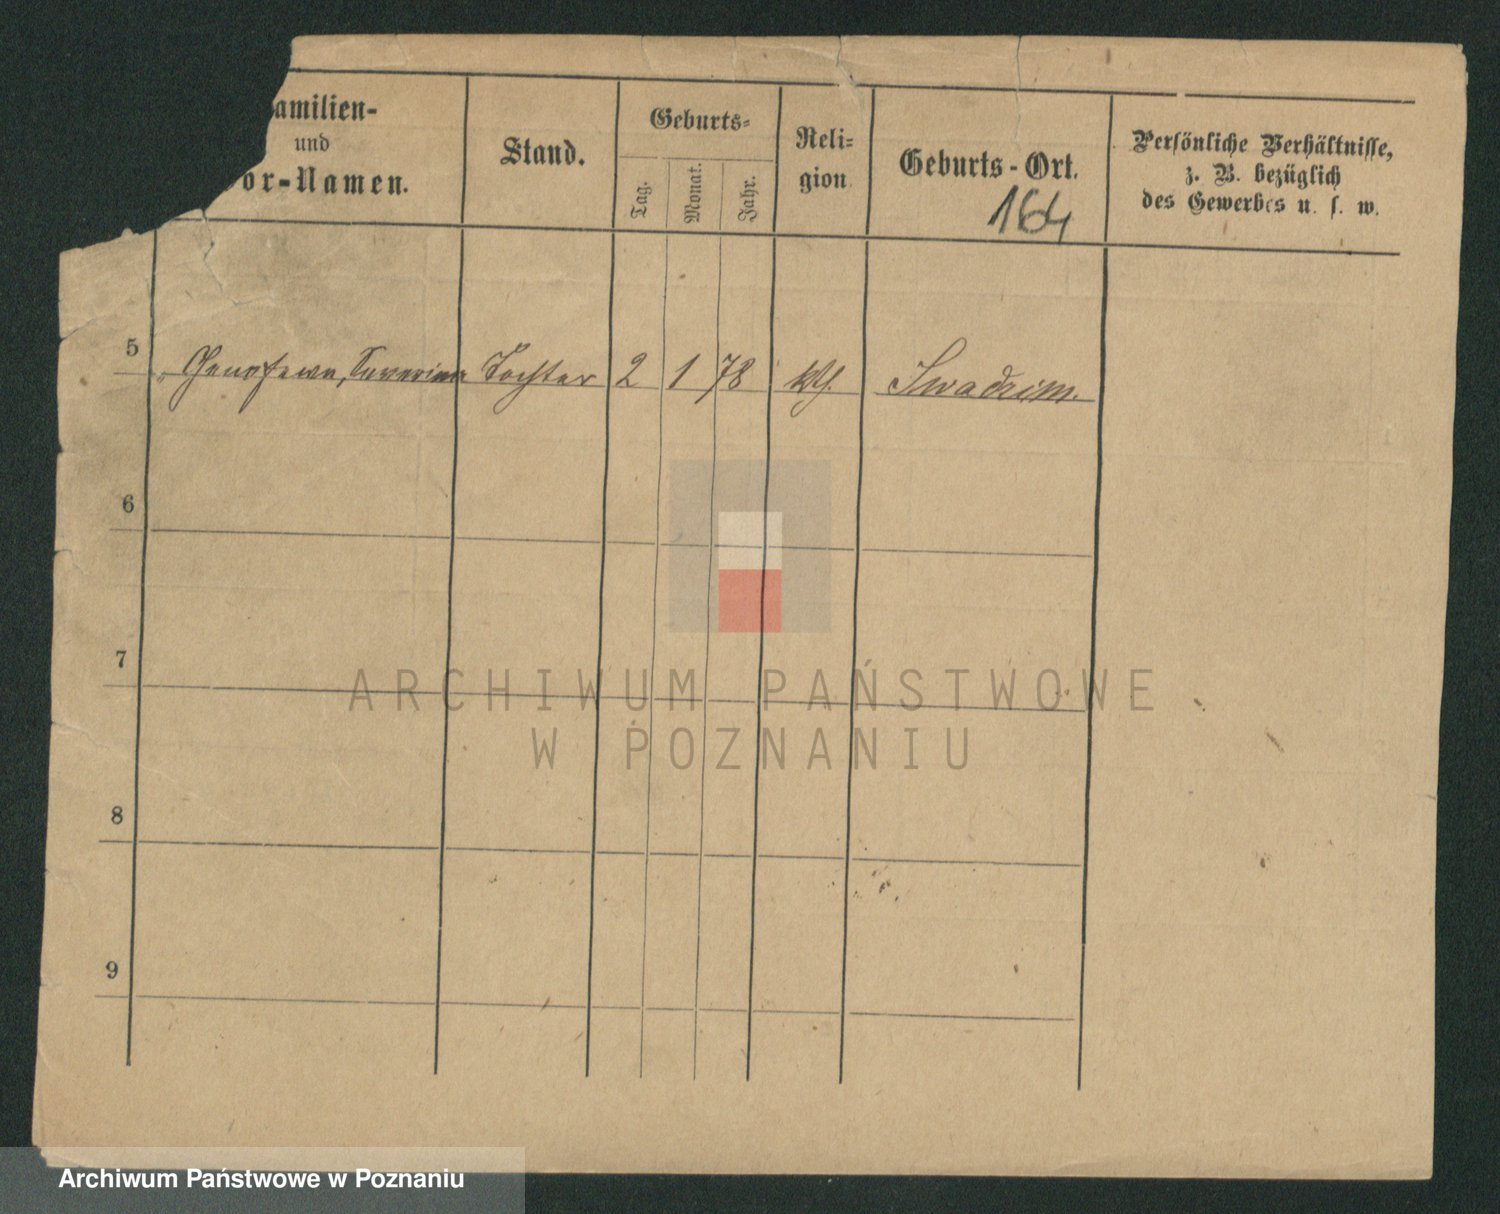 amilien-
und
or-Namen.
Stand.
Geburts-
Tag.
Monat.
Jahr.
Reli-
gion
Geburts-Ort.
164
Persönliche Verhältnisse,
z. B. bezüglich
des Gewerbes u. s. w.
5 Genofewa, Severina Tochter 2 1 78 kth. Swadzim.
6
7
ARCHIWUM PAŃSTWOWE
W POZNANIU
8
9
Archiwum Państwowe w Poznaniu